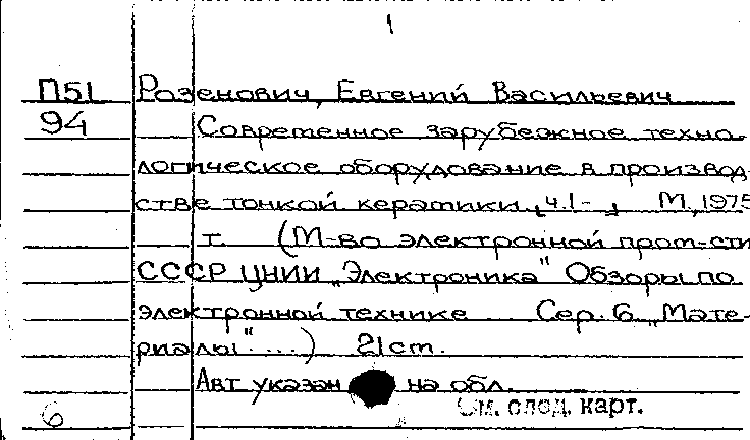 1
П51 Розенович, Евгений Васильевич
94 Современное зарубежное техно-
логическое оборудование в производ-
стве тонкой керамики, ч.1- , М, 1975
т. (М-во электронной пром-сти
СССР ЦНИИ „Электроника" Обзоры по
электронной технике Сер. 6 „Мате-
риалы"....) 21cm.
Авт указан на обл.
См. след. карт.
6